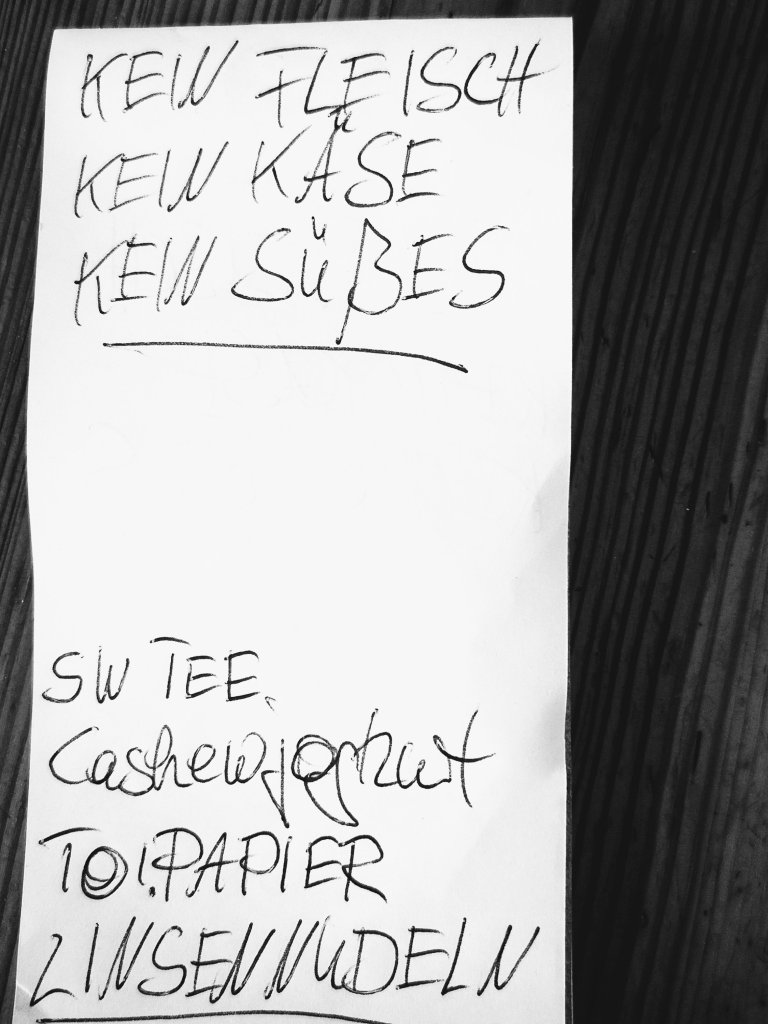 KEIN FLEISCH
KEIN KÄSE
KEIN SÜßES
SW TEE.
Cashewjoghurt
TOI.PAPIER
LINSENNUDELN